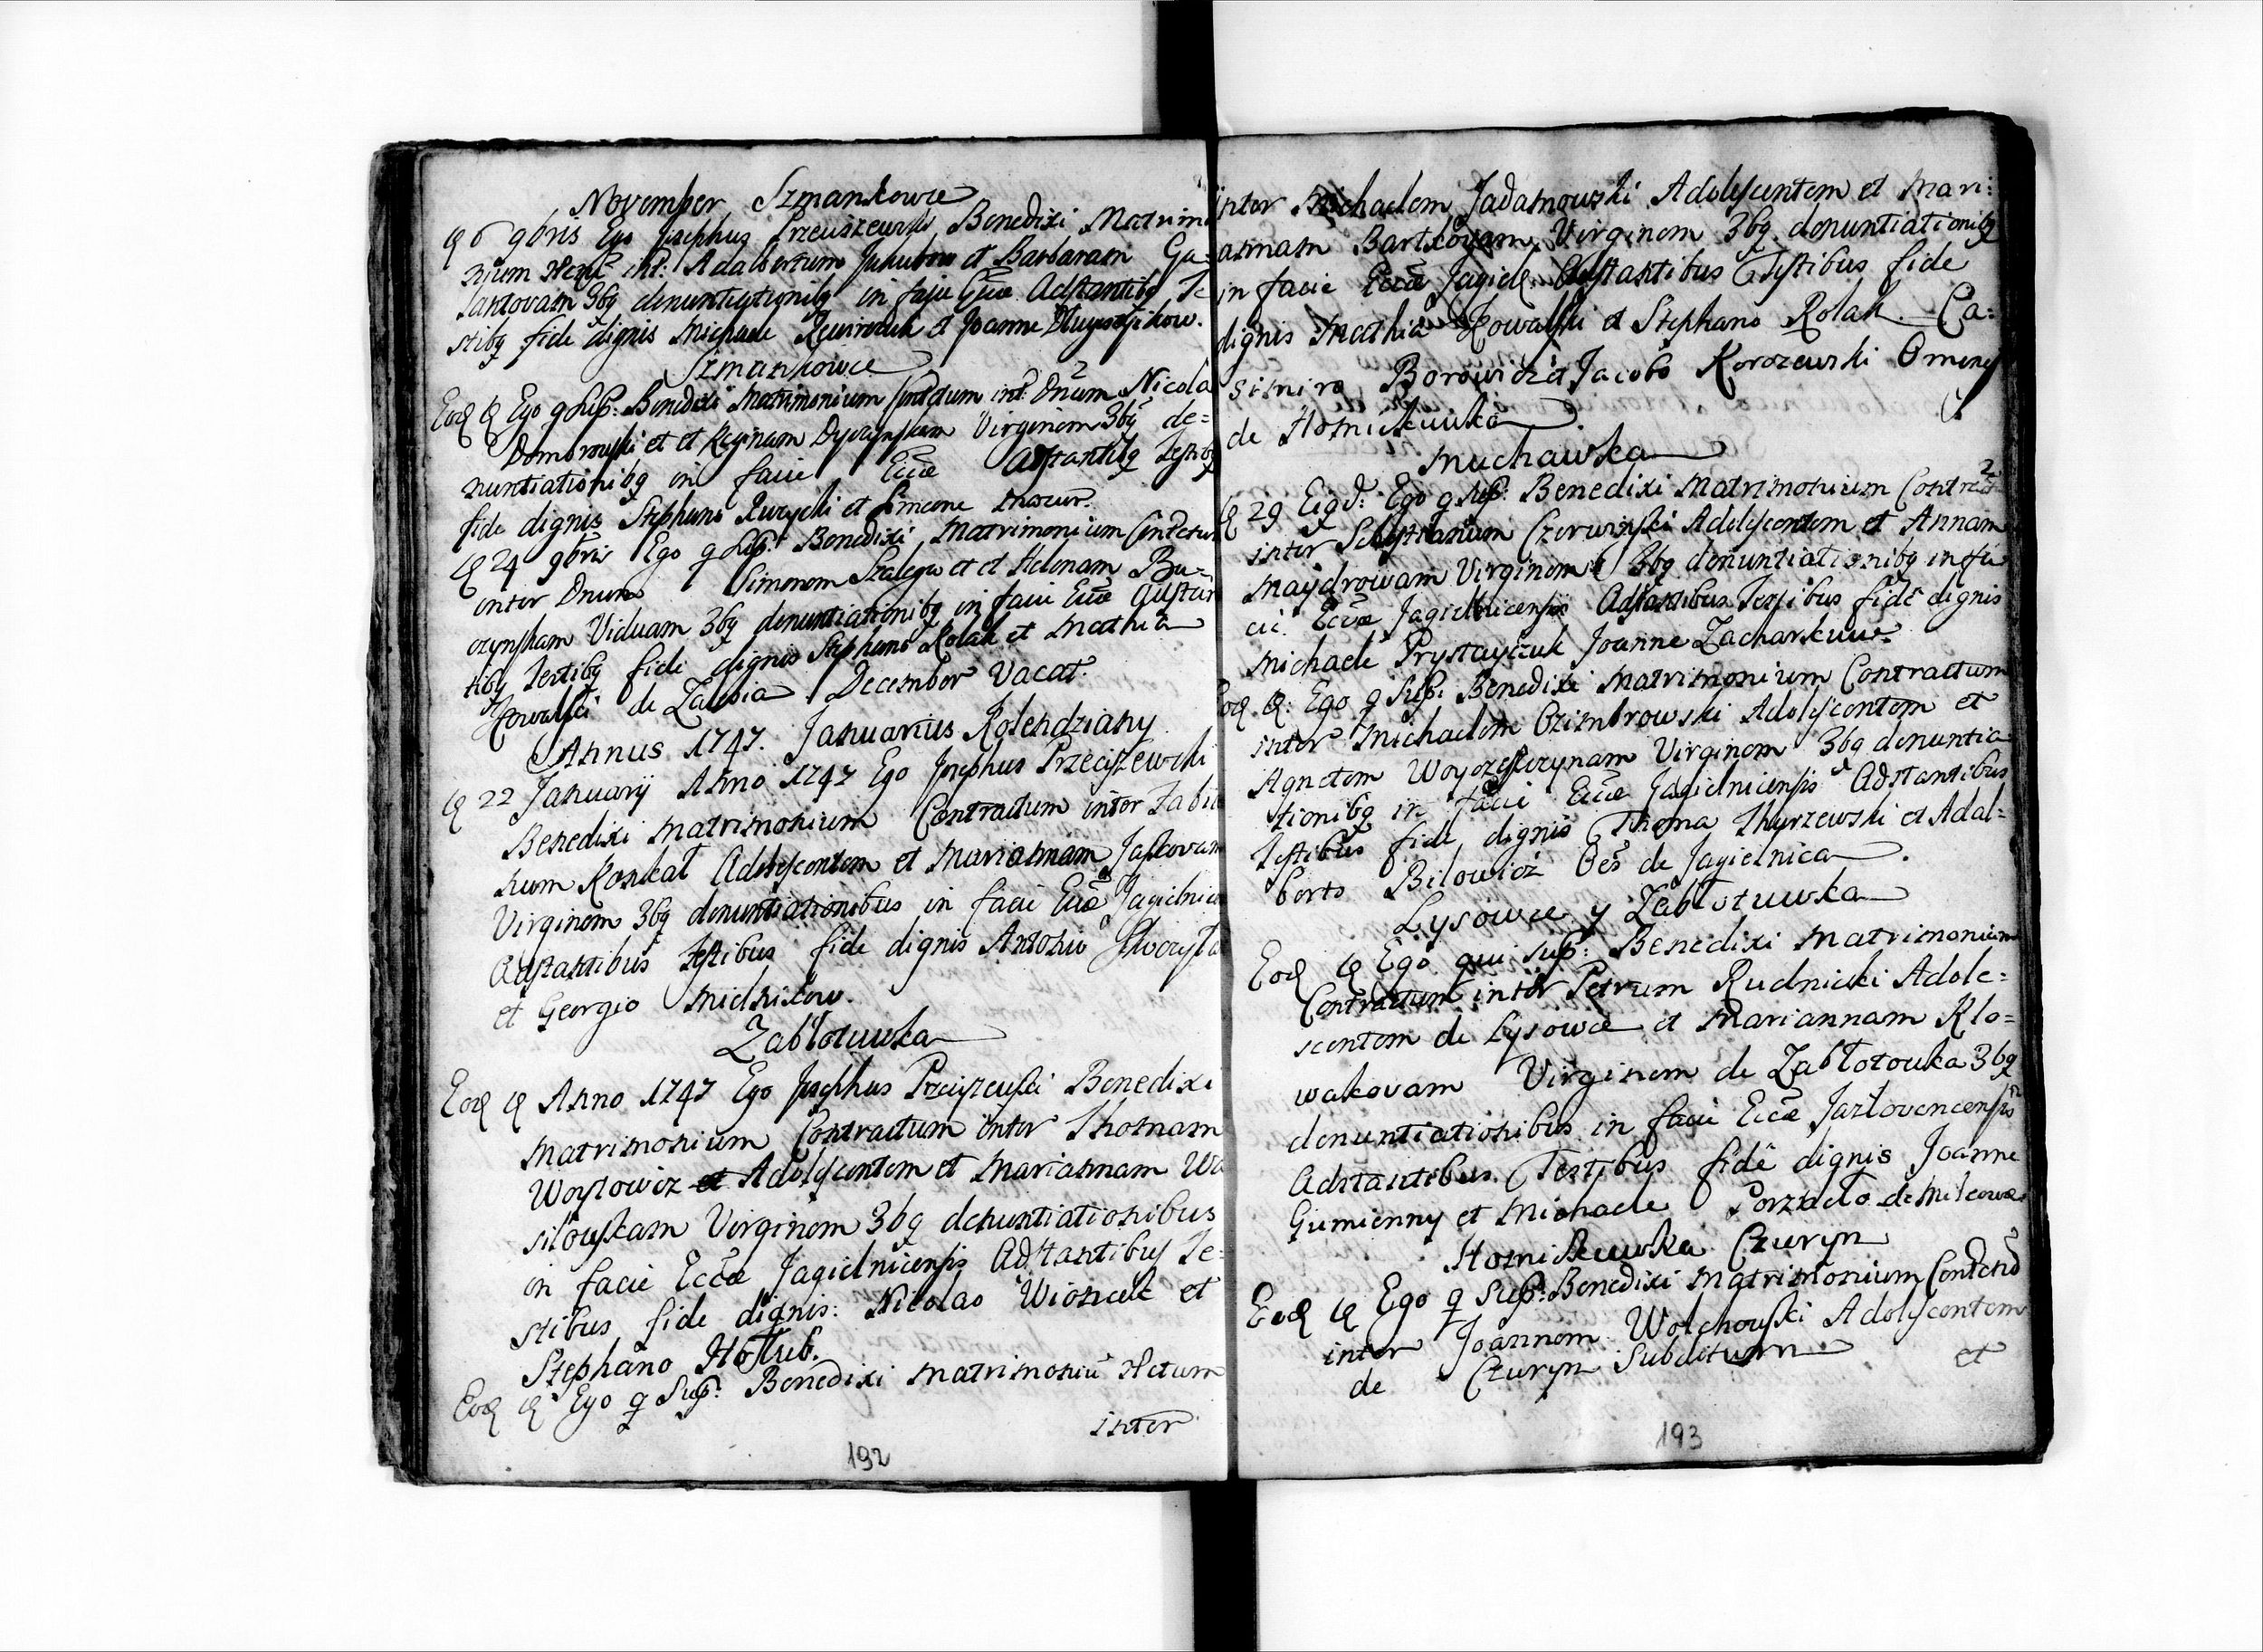 November Szmankowce
d 6 9bris Ego Josephus Przeciszewski Benedixi Matrimo
nium int: Adalbertum et Barbaram Ga=
3bq denuntiationibq in facie Eccae Adstantibq Te
stibq fide dignis Michaele et Joanne
Szmankowce
Eod d Ego q Sup: Benedixi Matrimonium int: Dnum Nicola
Dombrowski et et Reginam Virginem 3bq de=
nuntiationibq in facie Eccae Adstantibq Testibq
fide dignis Stephano et Simeone
d 24 9bris Ego q Sup: Benedixi Matrimonium
inter Dnum Simonem et et Helenam Bu=
czynskam Viduam 3bq denuntiationibq in facie Eccae Adstan
tibq Testibq fide dignis Stephano Rolak et Mathia
Kowalski de Zalesia December Vacat.
Annus 1747. Januarius Kolendziany
d 22 Januarij Anno 1747 Ego Josephus Przeciszewski
Benedixi Matrimonium Contractum inter Fabia
num Konkal Adolescentem et Mariannam Jaskovam
Virginem 3bq denuntiationibus in facie Eccae Jagielnicen
Adstantibus Testibus fide dignis Antonio
et Georgio Mielnikow.
Zabłotuwka
Eod d Anno 1747 Ego Josephus Przeciszewski Benedixi
Matrimonium Contractum inter Thomam
Woytowicz et Adolescentem et Mariannam Wa
silowskam Virginem 3bq denuntiationibus
in facie Eccae Jagielnicensis Adstantibus Te=
stibus fide dignis: Nicolao Wioncek et
Stephano Hołub.
Eod d Ego q Sup: Benedixi Matrimoniu
inter
192
inter Michaelem Jadamowski Adolescentem et Mari:
annam Bartkovam Virginem 3bq denuntiationibq
in facie Eccae Jagiel. Adstantibus Testibus fide
dignis Mathia Kowalski et Stephano Rolak. Ca=
simiro Borowicz et Jacobo Korozewski Omnes
de Hotnickuwka.
Muchawka
d 29 Eiqd: Ego q Sup: Benedixi Matrimonium
inter Sebastianum Czerwinski Adolescentem et Annam
Maydrowam Virginem 3bq denuntiationibq in fa
cie Eccae Jagielnicensis Adstantibus Testibus fide dignis
Michaele Prystayczuk Joanne
Eod d: Ego q Sup: Benedixi Matrimonium Contractum
inter Michaelem Czimbrowski Adolescentem et
Agnetem Virginem 3bq denuntia
tionibq in facie Eccae Jagielnicensis Adstantibus
Testibus fide dignis Thoma Thurzewski et Adal=
berto Bilowicz Oes de Jagielnica.
Lysowce y Zabłotuwka
Eod d Ego qui Sup: Benedixi Matrimonium
Contractum inter Petrum Rudnicki Adole=
scentem de Lysowce et Mariannam Klo=
wakovam Virginem de Zabłotowka 3bq
denuntiationibus in facie Eccae Jazłovecensis
Adstantibus Testibus fide dignis Joanne
Gumienny et Michaele Porzadło de Milcowce
Hotnikuwka Czuryn
Eod d Ego q Sup: Benedixi Matrimonium
inter Joannem Wolchowski Adolescentem
de Czuryn Subditum et
193